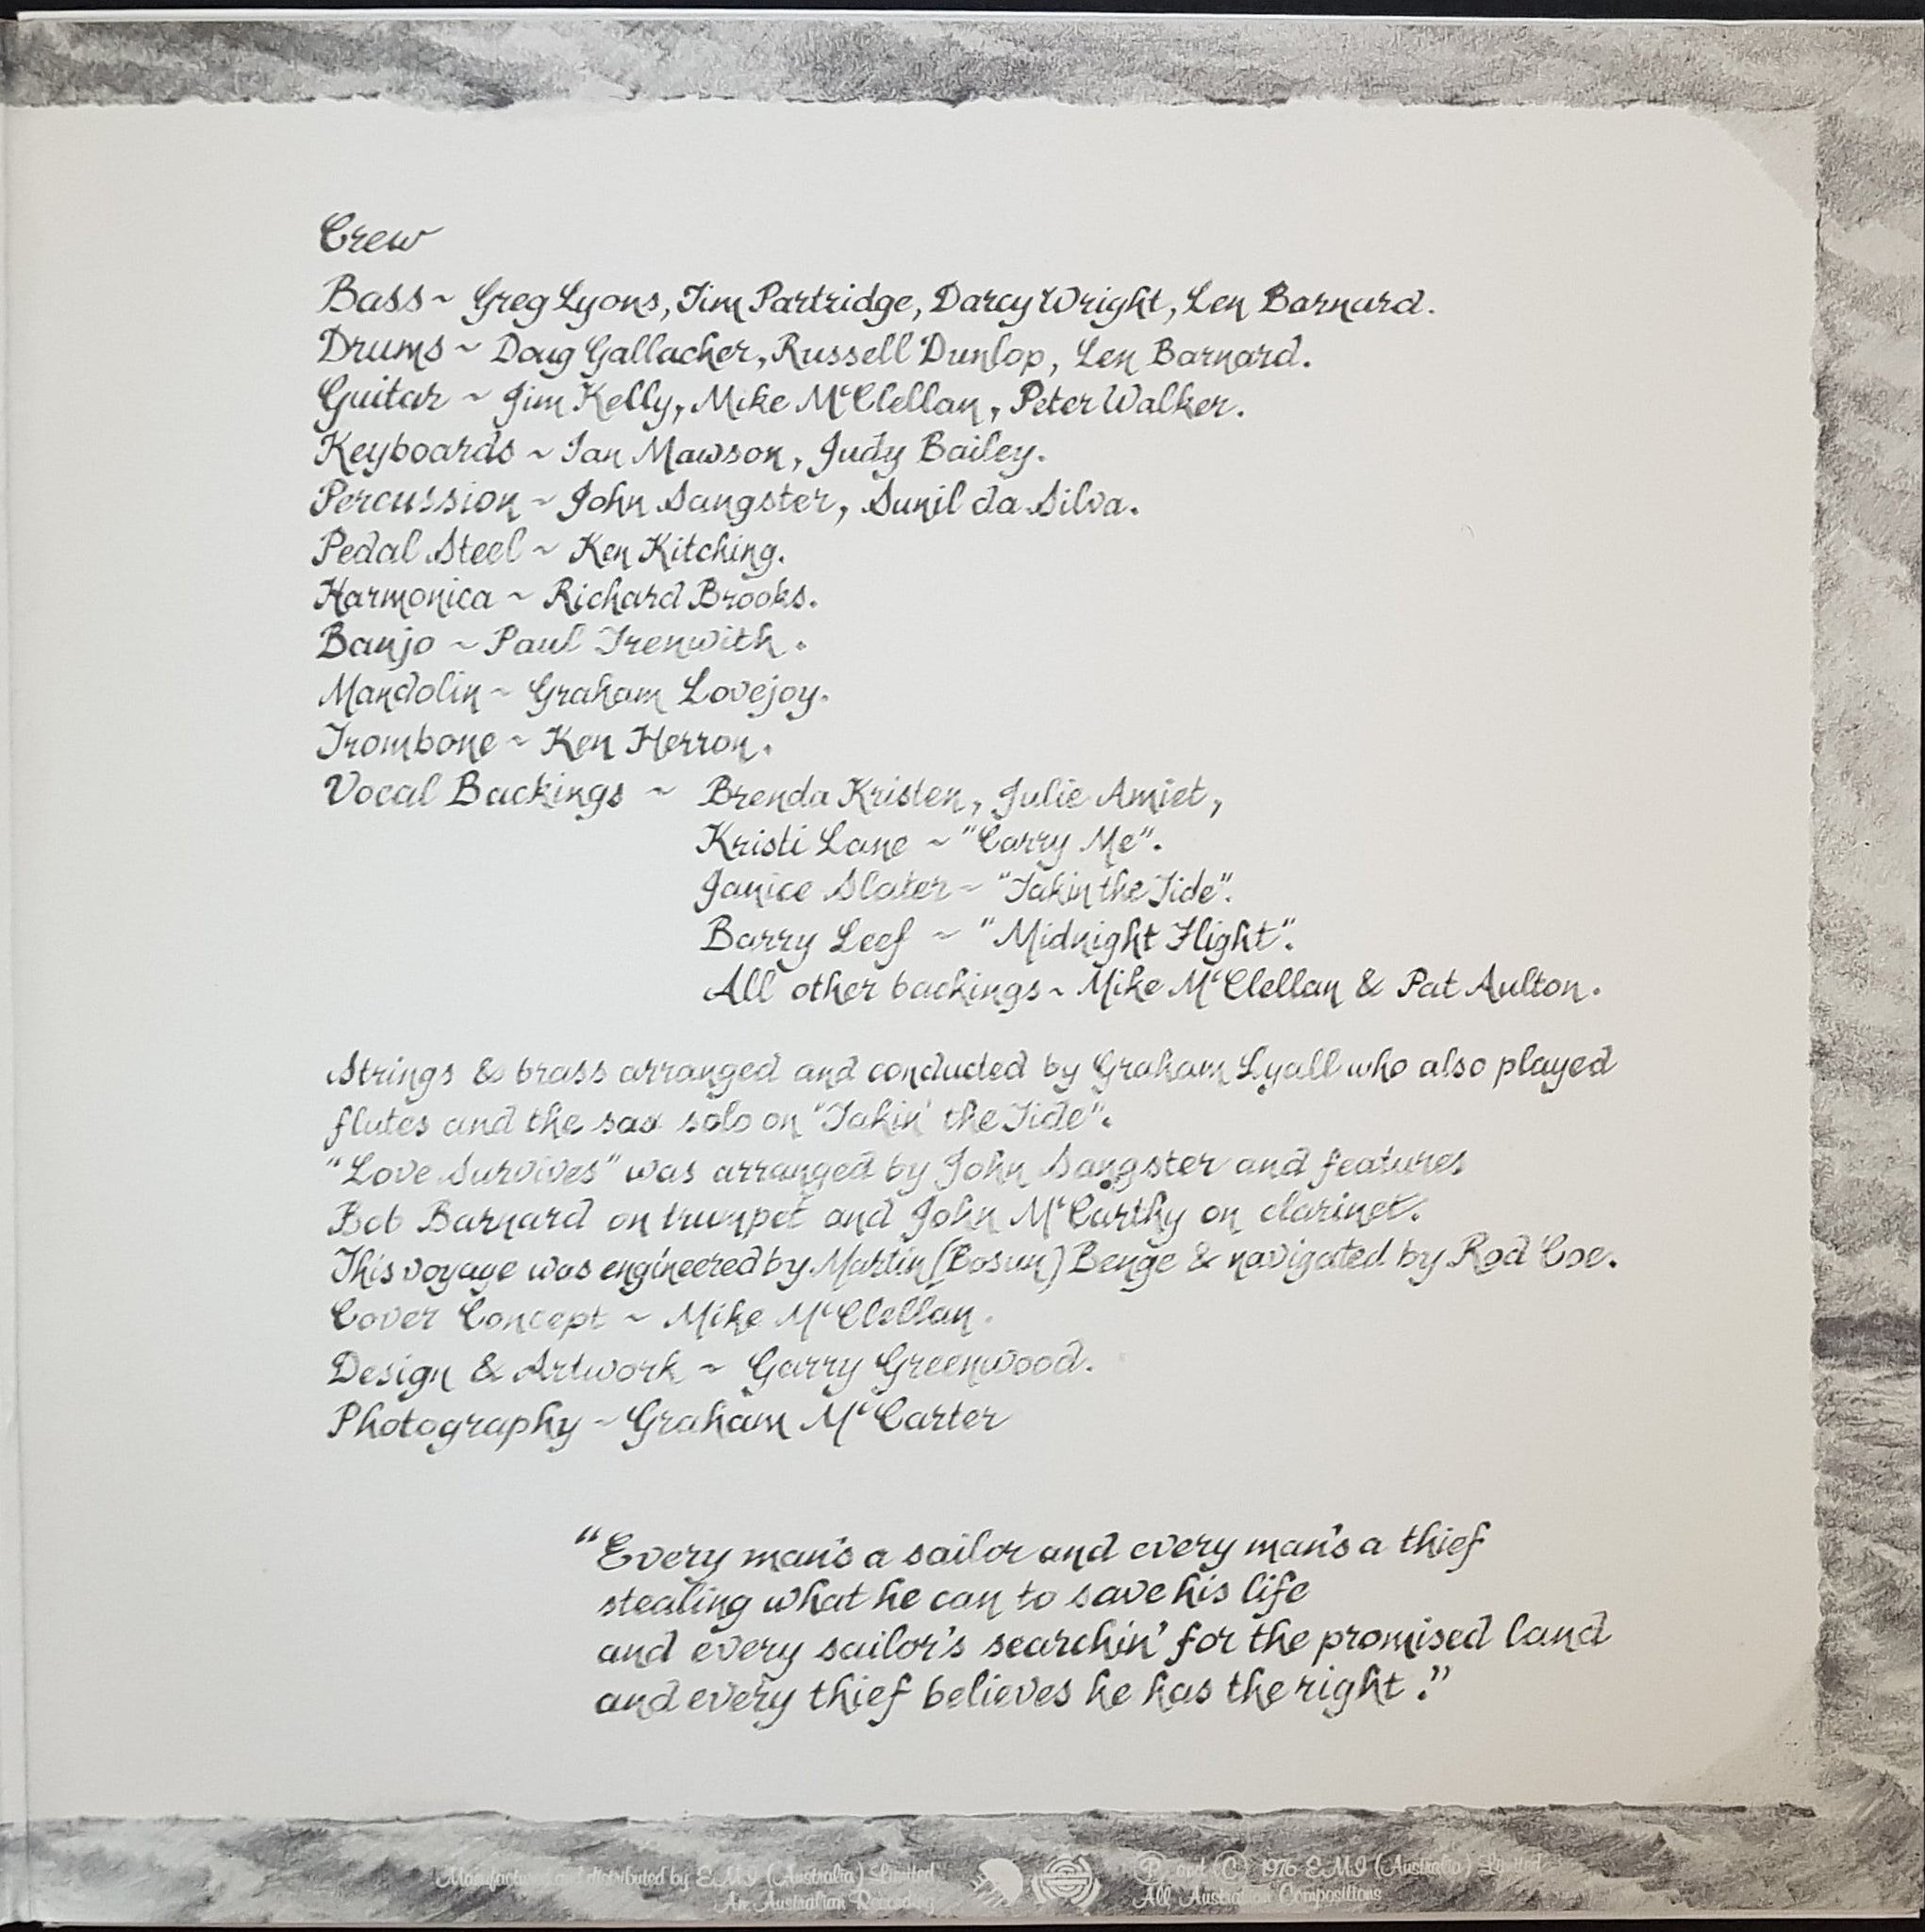 Crew
Bass ~ Greg Lyons, Tim Partridge, Darcy Wright, Len Barnard.
Drums ~ Doug Gallacher, Russell Dunlop, Len Barnard.
Guitar ~ Jim Kelly, Mike McClellan, Peter Walker.
Keyboards ~ Ian Mawson, Judy Bailey.
Percussion ~ John Sangster, Sunil da Silva.
Pedal Steel ~ Ken Kitching.
Harmonica ~ Richard Brooks.
Banjo ~ Paul Trenwith.
Mandolin ~ Graham Lovejoy.
Trombone ~ Ken Herron.
Vocal Backings ~ Brenda Kristen, Julie Amiet,
Kristi Lane ~ "Carry Me".
Janice Slater ~ "Takin the Tide".
Barry Leef ~ "Midnight Flight".
All other backings ~ Mike McClellan & Pat Aulton.
Strings & brass arranged and conducted by Graham Lyall who also played
flutes and the sax solo on "Takin' the Tide".
"Love Survives" was arranged by John Sangster and features
Bob Barnard on trumpet and John McCarthy on clarinet.
This voyage was engineered by Martin (Bosun) Benge & navigated by Rod Coe.
Cover Concept ~ Mike McClellan.
Design & Artwork ~ Garry Greenwood.
Photography ~ Graham McCarter
"Every man's a sailor and every man's a thief
stealing what he can to save his life
and every sailor's searchin' for the promised land
and every thief believes he has the right."
Manufactured and distributed by E.M.I (Australia) Limited
An Australian Recording
EMI
P and C 1976 E.M.I (Australia) Limited
All Australian Compositions